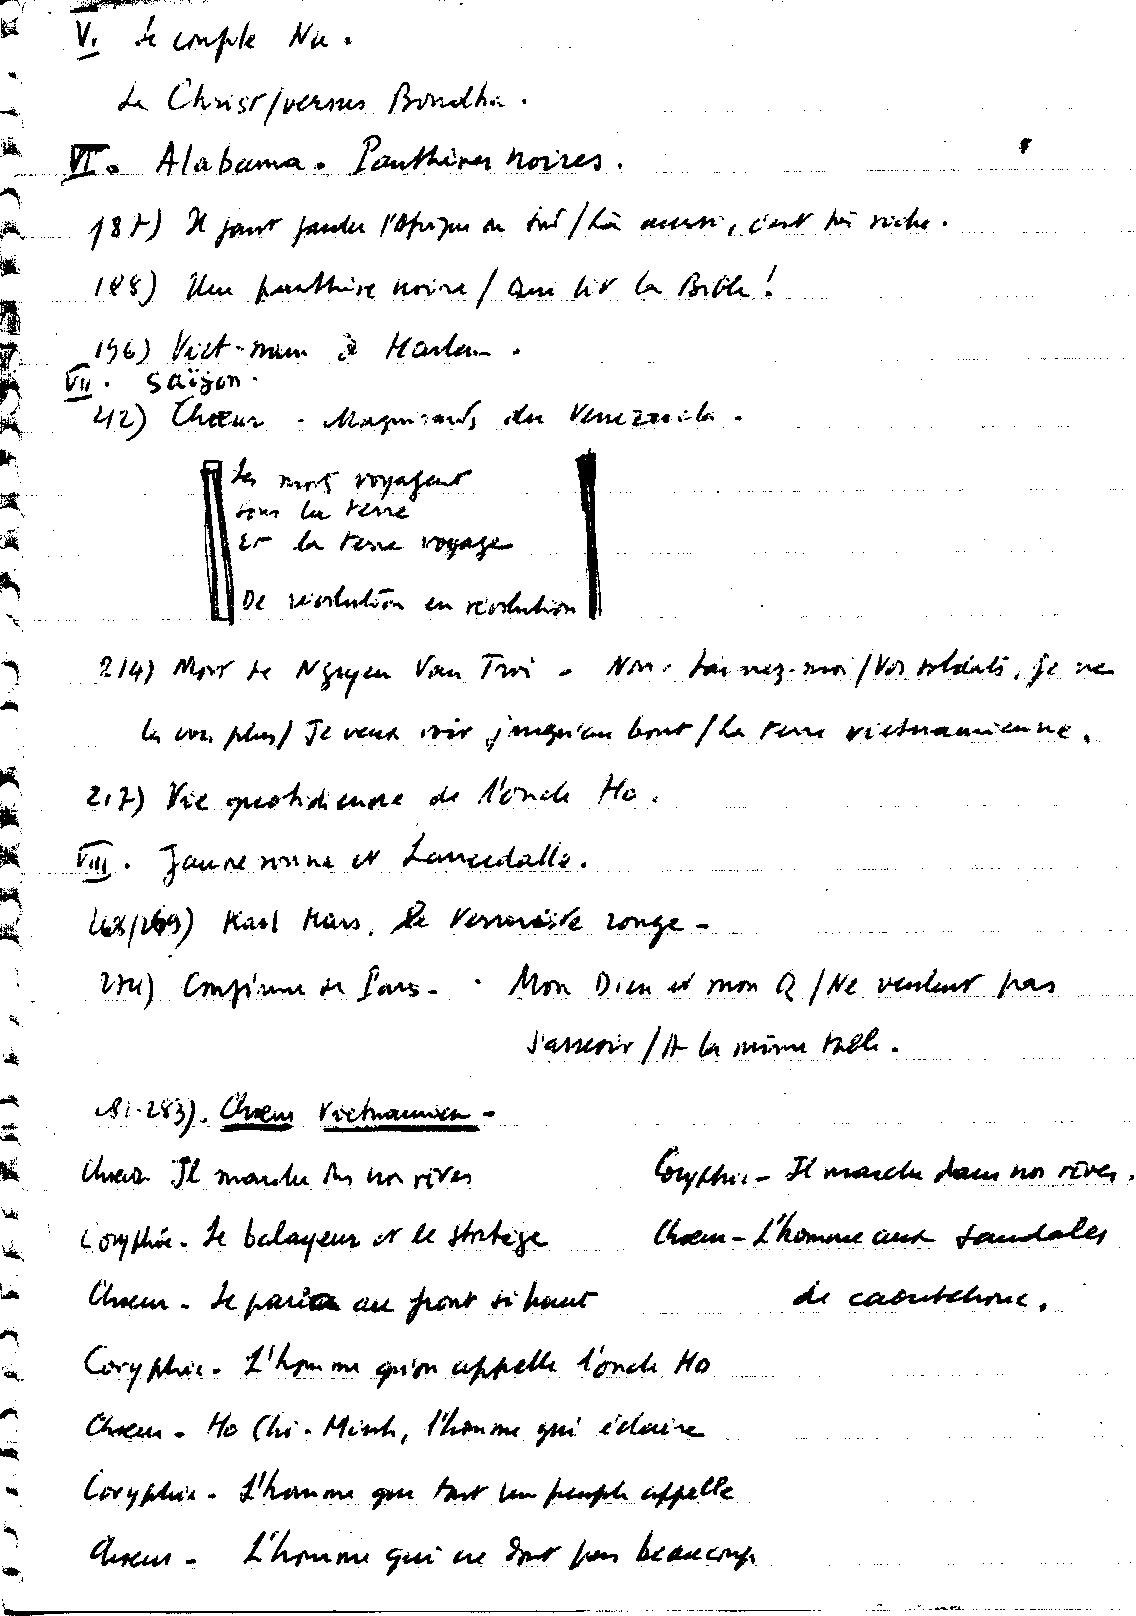 V. Le couple Nu.
Le Christ/versus Boudha.
VI. Alabama. Panthères noires.
187) Il faut garder l'Afrique du Sud/Là aussi, c'est très riche.
188) Une panthère noire/Qui lit la Bible!
196) Viet-nam à Harlem.
VII. Saïgon.
212) Chœur - Maquisards du Venezuela.
Les morts voyagent
sous la terre
Et la terre voyage
De révolution en révolution
214) Mort de Nguyen Van Troi - Non. Laissez-moi/Vos soldats, je ne
les vois plus/Je veux voir jusqu'au bout/La terre vietnamienne.
217) Vie quotidienne de l'oncle Ho.
VIII. Jaunesonne et Lancedalle.
268/269) Karl Mars, le terroriste rouge -
274) Confiance de Paris - Mon Dieu et mon Q/Ne veulent pas
s'asseoir/A la même table.
281-283). Chœur Vietnamien -
Chœur. Il marche ds nos rêves
Coryphée - Le balayeur et le stratège
Chœur - Le paria au front si haut
Coryphée - L'homme qu'on appelle l'oncle Ho
Chœur - Ho Chi-Minh, l'homme qui éclaire
Coryphée - L'homme que tout un peuple appelle
Chœur - L'homme qui ne dort pas beaucoup
Coryphée - Il marche dans nos rêves.
Chœur - L'homme aux sandales
de caoutchouc.